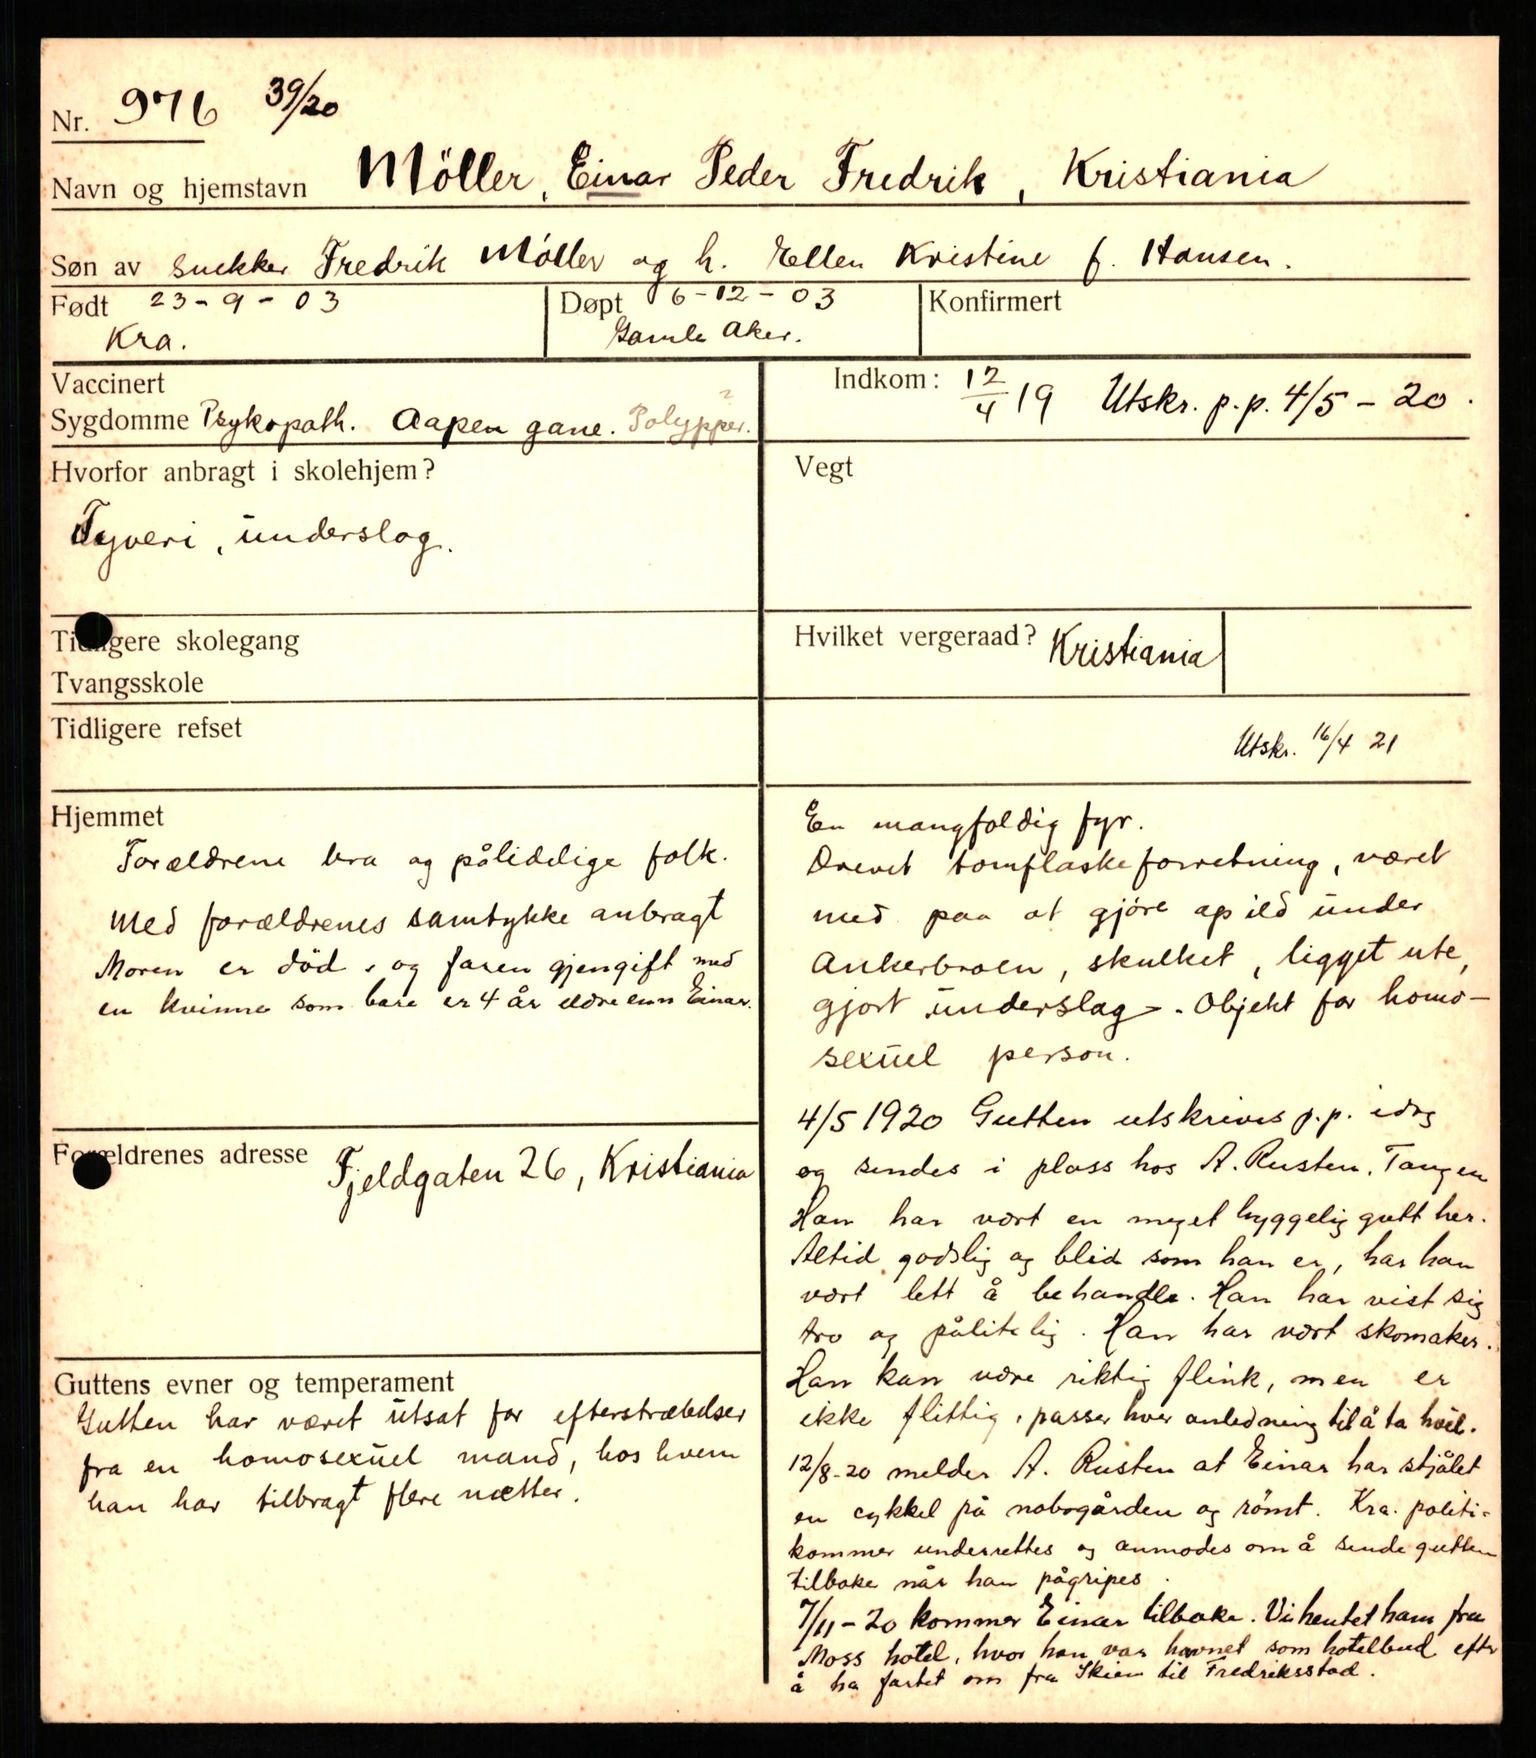 Nr. 976 39/20
Navn og hjemstavn Möller, Einar Peder Fredrik, Kristiania
Søn av snekker Fredrik Möller og h. Ellen Kristine f. Hansen.
Født 23-9-03
Kra.
Døpt 6-12-03
Gamle Aker.
Konfirmert
Vaccinert
Sygdomme Psykopath. Aapen gane. Polypper. ?
Indkom: 12/4 19 Utskr. p.p. 4/5-20.
Hvorfor anbragt i skolehjem?
Tyveri, underslag.
Vegt
Tidligere skolegang
Tvangsskole
Hvilket vergeraad? Kristiania
Tidligere refset
Utskr. 16/4 21
Hjemmet
Forældrene bra og pålidelige folk.
Med forældrenes samtykke anbragt
Moren er död, og faren gjengift med
en kvinne som bare er 4 år eldre enn Einar.
Forældrenes adresse Fjeldgaten 26, Kristiania
Guttens evner og temperament
Gutten har været utsat for efterstræbelser
fra en homosexuel mand, hos hvem
han har tilbragt flere nætter.
En mangfoldig fyr.
Drevet tomflaskeforretning, været
med paa at gjöre op ild under
Ankerbroen, skulket, ligget ute,
gjort underslag -. Objekt for homo-
sexuel person.
4/5 1920 Gutten utskrives p.p. idag
og sendes i plass hos A. Rusten, Tangen
Han har vært en meget hyggelig gutt her.
Altid godslig og blid som han er, har han
vært lett å behandle. Han har vist sig
tro og pålitelig. Han har vært skomaker.
Han kan være riktig flink, men er
ikke flittig, passer hver anledning til å ta hvil.
12/8-20 melder A. Rusten at Einar har stjålet
en cykkel på nabogården og römt. Kra. politi-
kammer underrettes og anmodes om å sende gutten
tilbake når han pågripes.
7/11-20 kommer Einar tilbake. Vi hentet ham fra
Moss hotel, hvor han var havnet som hotelbud efter
å ha fartet om fra Skien til Fredriksstad.